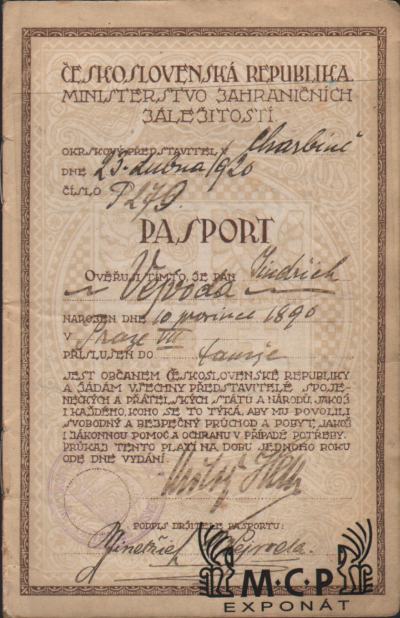 ČESKOSLOVENSKÁ REPUBLIKA.
MINISTERSTVO ZAHRANIČNÍCH
ZÁLEŽITOSTÍ.
OKRSKOVÝ PŘEDSTAVITEL V Charbině
DNE 23. dubna 1920
ČÍSLO P 279.
PASPORT
OVĚŘUJI TÍMTO, ŽE PÁN Jindřich
Vejvoda
NAROZEN DNE 10 prosince 1890
V Praze VII
PŘÍSLUŠEN DO tamže
JEST OBČANEM ČESKOSLOVENSKÉ REPUBLIKY
A ŽÁDÁM VŠECHNY PŘEDSTAVITELE SPOJE-
NECKÝCH A PŘÁTELSKÝCH STÁTŮ A NÁRODŮ, JAKOŽ
I KAŽDÉHO, KOHO SE TO TÝKÁ, ABY MU POVOLILI
SVOBODNÝ A BEZPEČNÝ PRŮCHOD A POBYT, JAKOŽ
I ZÁKONNOU POMOC A OCHRANU V PŘÍPADĚ POTŘEBY.
PRŮKAZ TENTO PLATÍ NA DOBU JEDNOHO ROKU
ODE DNE VYDÁNÍ.
PODPIS DRŽITELE PASPORTU:
Jindřich Vejvoda.
M·C·P
EXPONÁT